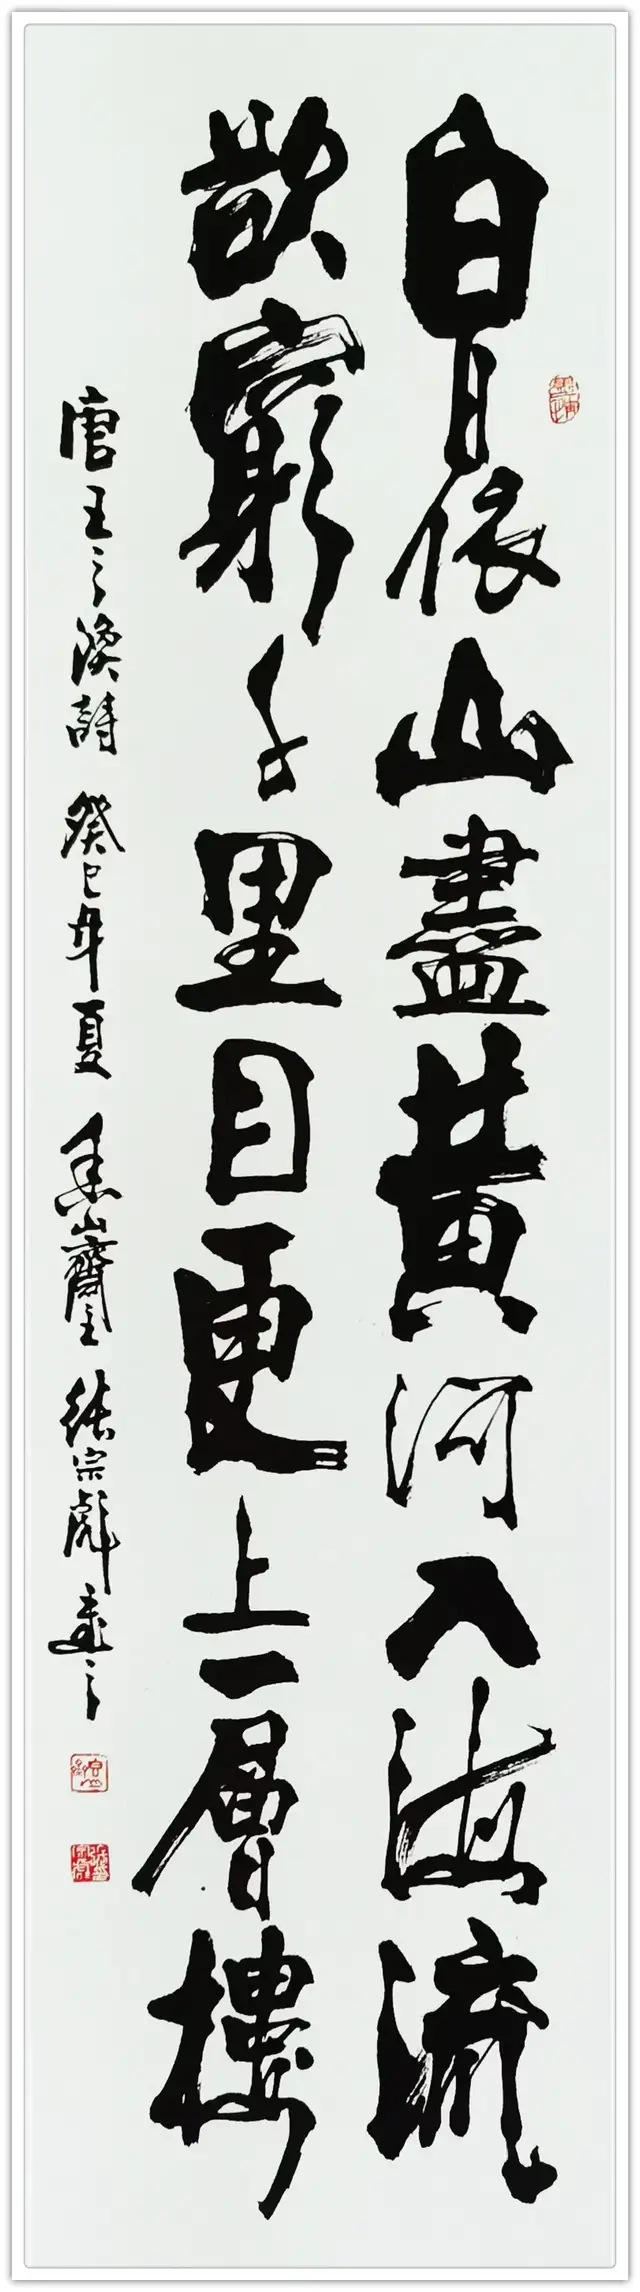 白日依山盡黄河入海流
欲窮千里目更上一層樓
唐王之渙詩 癸巳年夏 山齋主 張宗彪